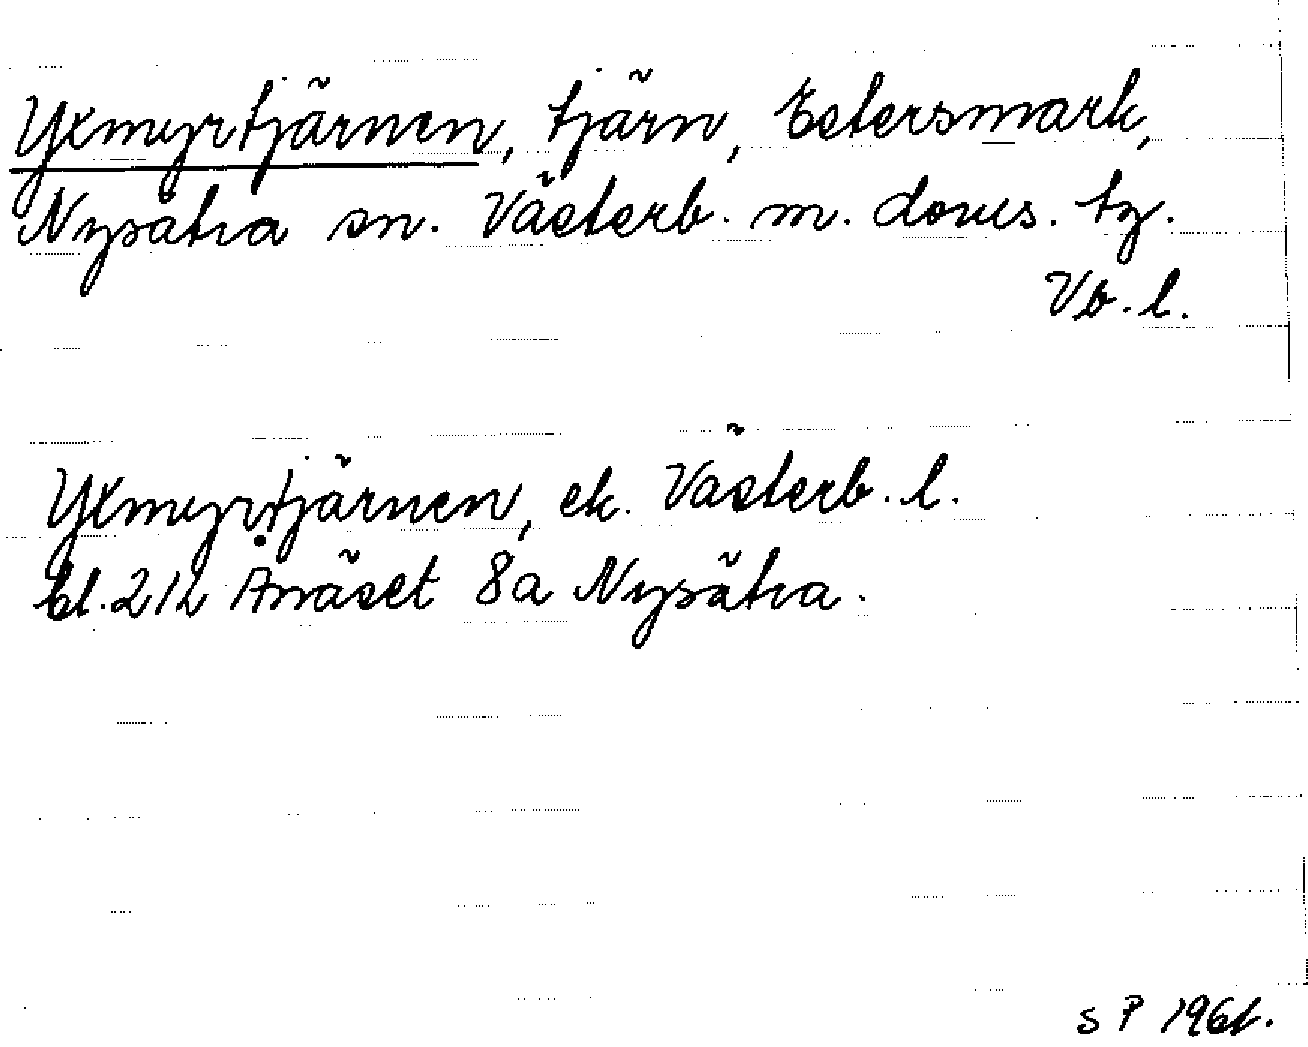 Yxmyrtjärnen, tjärn, Estersmark,
Nysätra sn. Västerb. m. doms. tg.
Vb. l.
Yxmyrtjärnen, ek. Västerb. l.
bl. 212 Ånäset 8a Nysätra.
S P 1961.